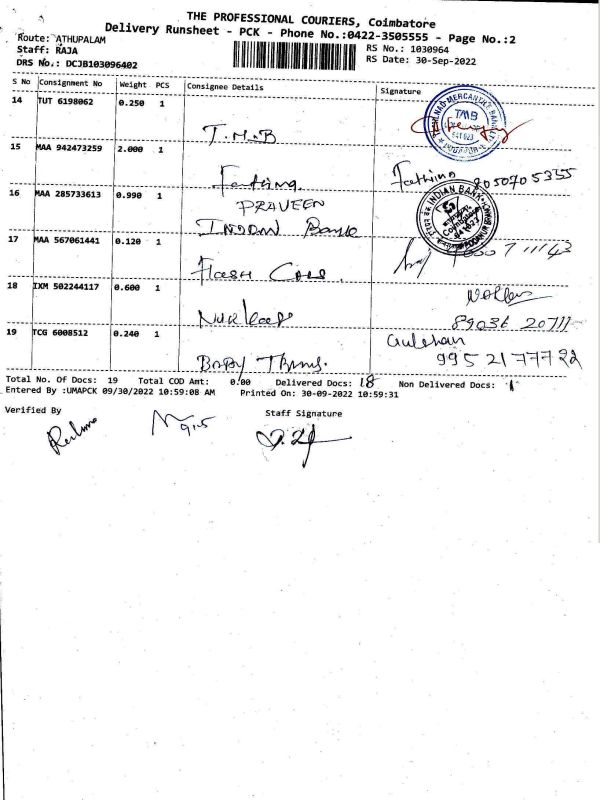 THE PROFESSIONAL COURIERS, Coimbatore
Delivery Runsheet - PCK - Phone No.:0422-3505555 - Page No.:2
Route: ATHUPALAM
Staff: RAJA
DRS No.: DCJB103096402
RS No.: 1030964
RS Date: 30-Sep-2022
S No Consignment No Weight PCS Consignee Details Signature
14 TUT 6198062 0.250 1
T.M.B
TMB
15 MAA 942473259 2.000 1
Fathima
Fathima 9050705355
16 MAA 285733613 0.990 1
PRAVEEN
INDIAN Bank
INDIAN BANK
Coimbatore
17 MAA 567061441 0.120 1
Flash
18 IXM 502244117 0.600 1
19 TCG 6008512 0.240 1
Baby Trans.
Gulshan
99521 77722
Total No. Of Docs: 19 Total COD Amt: 0.00 Delivered Docs: 18 Non Delivered Docs: 1
Entered By :UMAPCK 09/30/2022 10:59:08 AM Printed On: 30-09-2022 10:59:31
Verified By Staff Signature